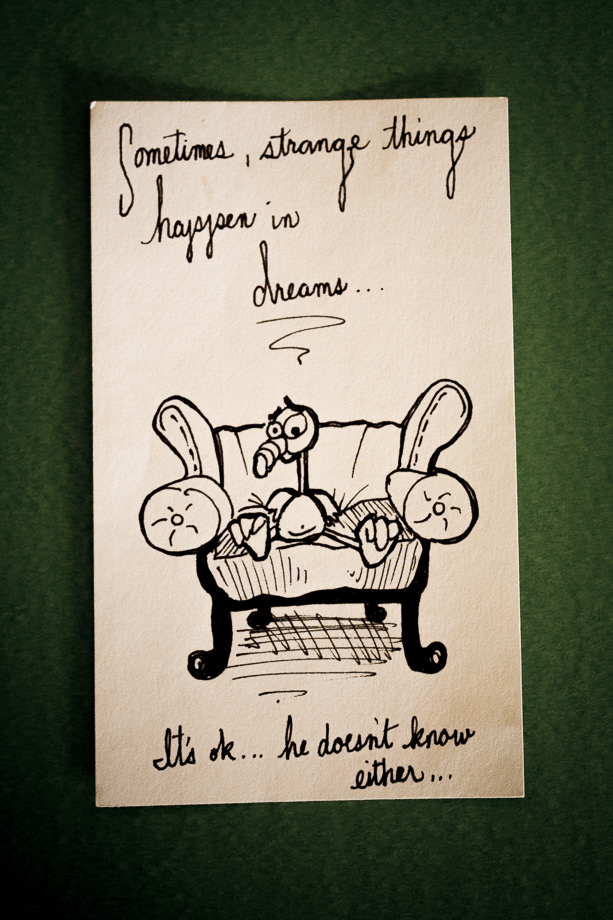 Sometimes, strange things
happen in
dreams...
It's ok... he doesn't know
either...